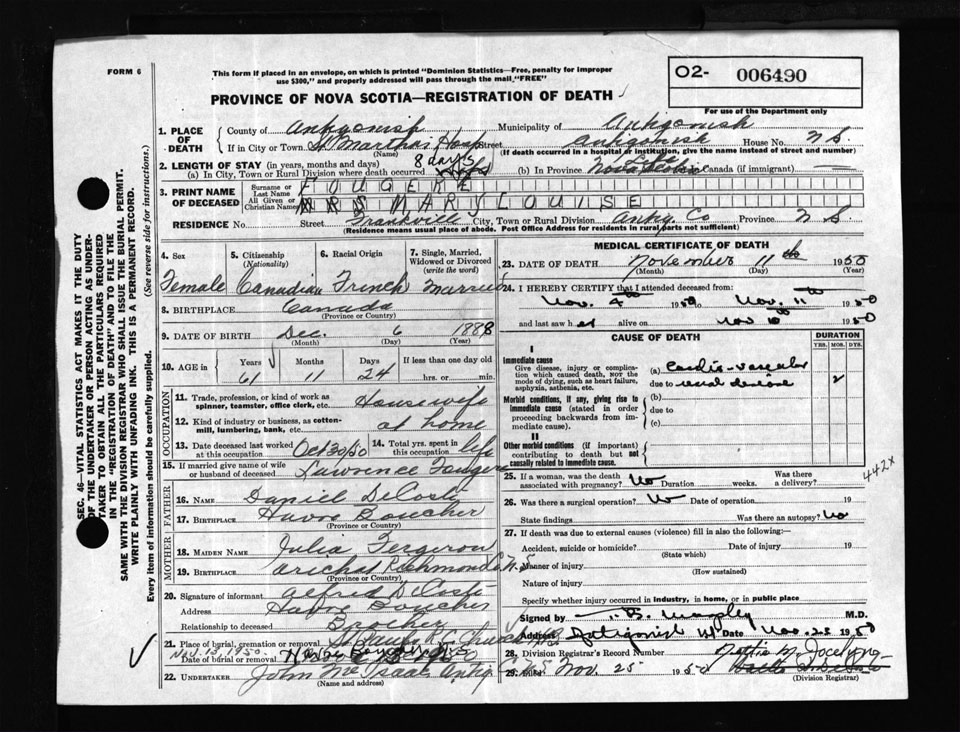 FORM 6
This form if placed in an envelope, on which is printed "Dominion Statistics—Free, penalty for improper
use $300," and properly addressed will pass through the mail "FREE"
O2- 006490
PROVINCE OF NOVA SCOTIA—REGISTRATION OF DEATH
For use of the Department only
1. PLACE OF DEATH
County of Antigonish Municipality of Antigonish
If in City or Town St Marthas Hosp Street Antigonish House No. N.S.
(Name) (If death occurred in a hospital or institution, give the name instead of street and number)
2. LENGTH OF STAY (in years, months and days) 8 days Life
(a) In City, Town or Rural Division where death occurred (b) In Province Nova Scotia Canada (if immigrant) —
3. PRINT NAME OF DECEASED
Surname or Last Name FOUGERE
All Given or Christian Names MRS MARY LOUISE
RESIDENCE No. Street Frankville City, Town or Rural Division Antig. Co Province N S.
(Residence means usual place of abode. Post Office Address for residents in rural parts not sufficient)
4. Sex Female
5. Citizenship (Nationality) Canadian
6. Racial Origin French
7. Single, Married, Widowed or Divorced (write the word) Married
8. BIRTHPLACE Canada
(Province or Country)
9. DATE OF BIRTH Dec. 6 1888
(Month) (Day) (Year)
10. AGE in Years Months Days If less than one day old
61 11 24 hrs. or min.
OCCUPATION
11. Trade, profession, or kind of work as spinner, teamster, office clerk, etc. Housewife
12. Kind of industry or business, as cotton-mill, lumbering, bank, etc. at home
13. Date deceased last worked at this occupation Oct 30/50
14. Total yrs. spent in this occupation life
15. If married give name of wife or husband of deceased Lawrence Fougere
FATHER
16. NAME Daniel DeCoste
17. BIRTHPLACE Havre Boucher
(Province or Country)
MOTHER
18. MAIDEN NAME Julia Fergeron
19. BIRTHPLACE Arichat Richmond Co N.S
(Province or Country)
20. Signature of informant Alfred DeCoste
Address Havre Boucher
Relationship to deceased Brother
21. Place of burial, cremation or removal St Paul's R C Church
Nov. 13, 1950.
Date of burial or removal Havre Boucher N S
22. UNDERTAKER John McIsaac Antig. Co. N S
(Name and address)
MEDICAL CERTIFICATE OF DEATH
23. DATE OF DEATH November 11th 1950
(Month) (Day) (Year)
24. I HEREBY CERTIFY that I attended deceased from:
Nov. 4th 1950 to Nov. 11th 1950
and last saw her alive on Nov 10th 1950
CAUSE OF DEATH DURATION
YRS. MOS. DYS.
I
Immediate cause
Give disease, injury or complication which caused death, NOT the mode of dying, such as heart failure, asphyxia, asthenia, etc.
(a) Cardio-vascular
due to renal disease 2
Morbid conditions, if any, giving rise to immediate cause (stated in order proceeding backwards from immediate cause).
(b)
due to
(c)
II
Other morbid conditions (if important) contributing to death but not causally related to immediate cause.
442X
25. If a woman, was the death associated with pregnancy? No Duration weeks. Was there a delivery?
26. Was there a surgical operation? No Date of operation 19
State findings Was there an autopsy? No
27. If death was due to external causes (violence) fill in also the following:—
Accident, suicide or homicide? Date of injury 19
(State which)
Manner of injury
(How sustained)
Nature of injury
Specify whether injury occurred in industry, in home, or in public place
Signed by M.D.
Address Antigonish N.S. Date Nov. 25 1950
28. Division Registrar's Record Number
Nettie M. Jocelyn
29. Filed Nov. 25 1950
(Division Registrar)
SEC. 46—VITAL STATISTICS ACT MAKES IT THE DUTY
OF THE UNDERTAKER OR PERSON ACTING AS UNDER-
TAKER TO OBTAIN ALL THE PARTICULARS REQUIRED
IN THE "REGISTRATION OF DEATH" AND TO FILE THE
SAME WITH THE DIVISION REGISTRAR WHO SHALL ISSUE THE BURIAL PERMIT.
WRITE PLAINLY WITH UNFADING INK. THIS IS A PERMANENT RECORD.
Every item of information should be carefully supplied. (See reverse side for instructions.)